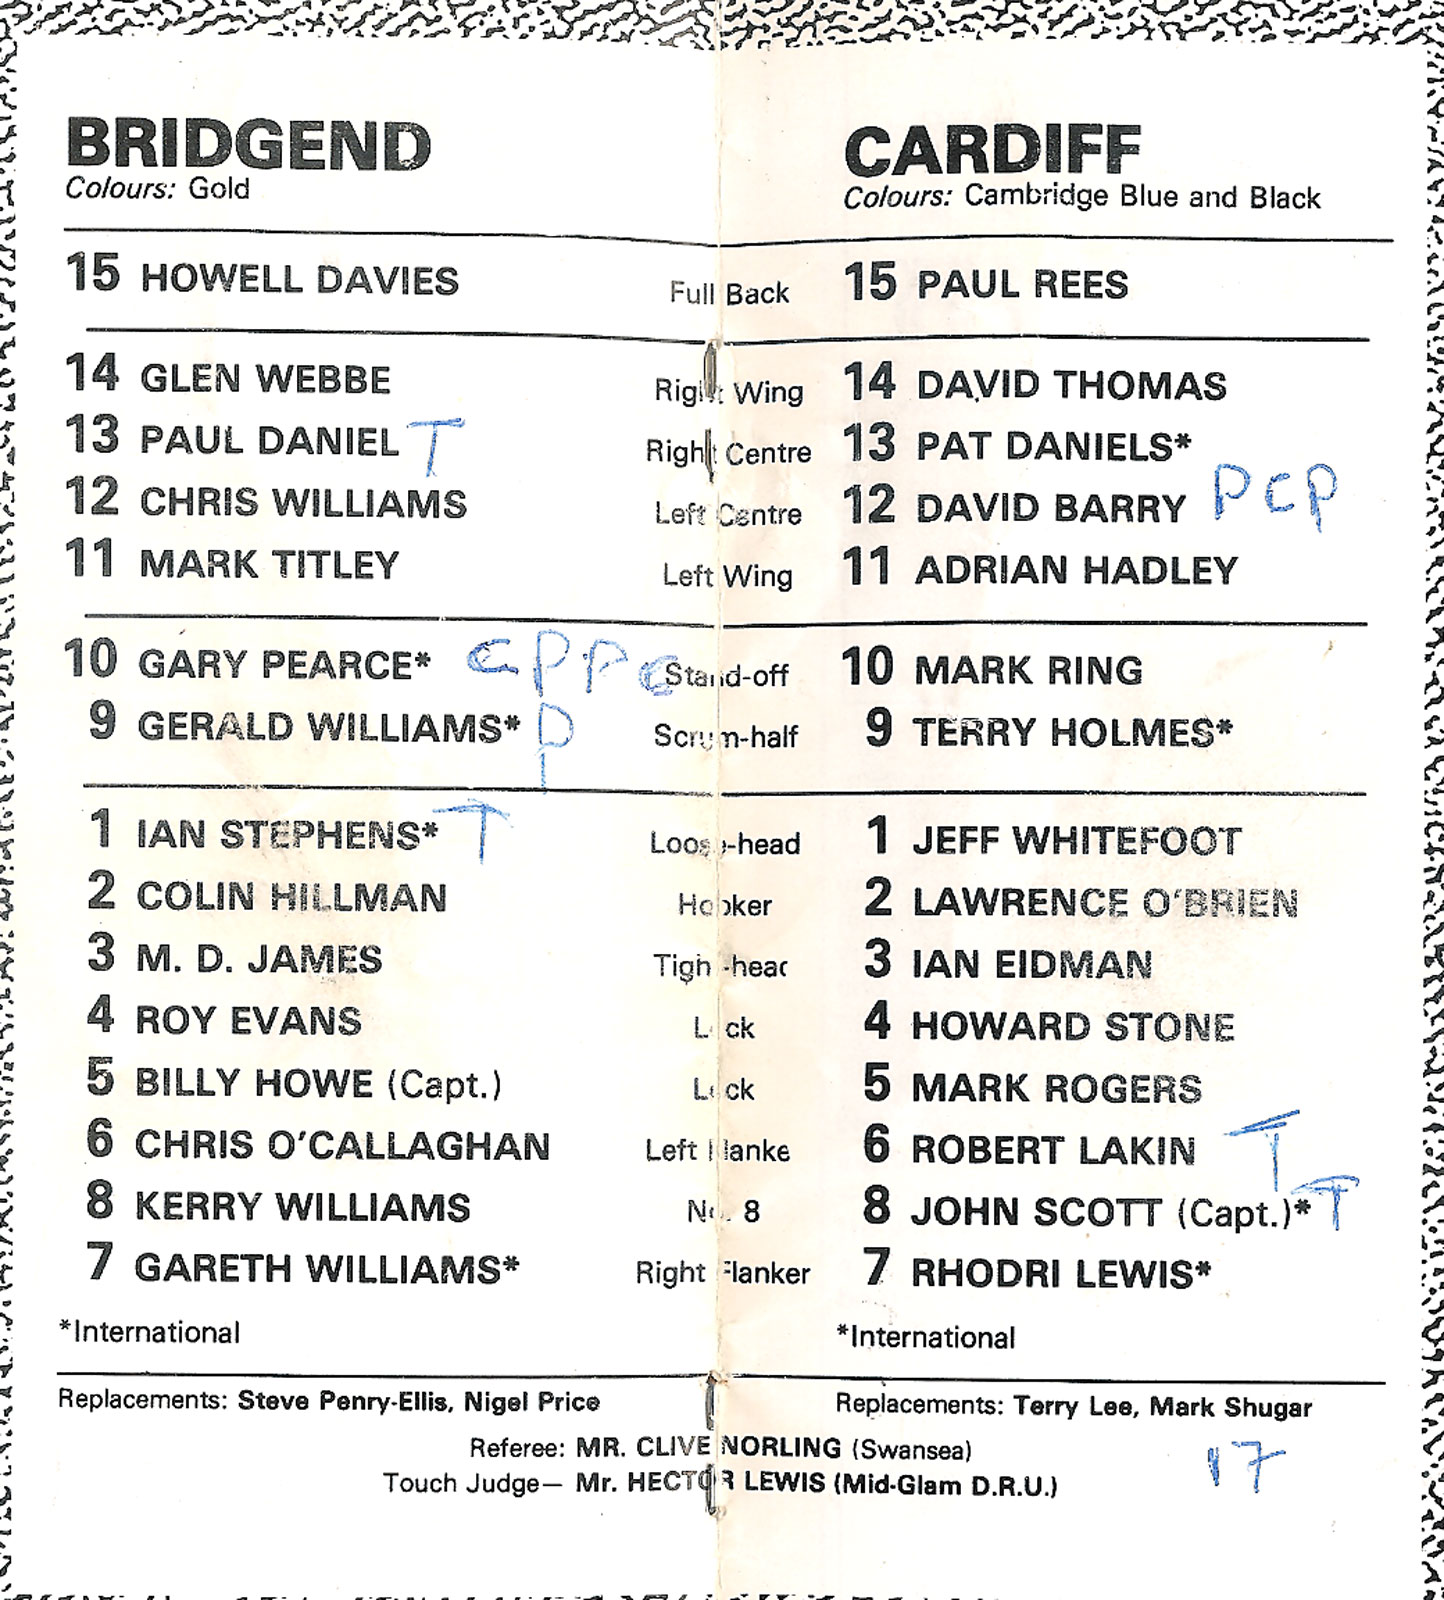 BRIDGEND CARDIFF
Colours: Gold Colours: Cambridge Blue and Black
15 HOWELL DAVIES Full Back 15 PAUL REES
14 GLEN WEBBE Right Wing 14 DAVID THOMAS
13 PAUL DANIEL T Right Centre 13 PAT DANIELS*
12 CHRIS WILLIAMS Left Centre 12 DAVID BARRY P C P
11 MARK TITLEY Left Wing 11 ADRIAN HADLEY
10 GARY PEARCE* C P P C Stand-off 10 MARK RING
9 GERALD WILLIAMS* P Scrum-half 9 TERRY HOLMES*
1 IAN STEPHENS* T Loose-head 1 JEFF WHITEFOOT
2 COLIN HILLMAN Hooker 2 LAWRENCE O'BRIEN
3 M. D. JAMES Tight-head 3 IAN EIDMAN
4 ROY EVANS Lock 4 HOWARD STONE
5 BILLY HOWE (Capt.) Lock 5 MARK ROGERS
6 CHRIS O'CALLAGHAN Left Flanker 6 ROBERT LAKIN T
8 KERRY WILLIAMS No. 8 8 JOHN SCOTT (Capt.)* T
7 GARETH WILLIAMS* Right Flanker 7 RHODRI LEWIS*
*International *International
Replacements: Steve Penry-Ellis, Nigel Price Replacements: Terry Lee, Mark Shugar
Referee: MR. CLIVE NORLING (Swansea)
Touch Judge— Mr. HECTOR LEWIS (Mid-Glam D.R.U.) 17